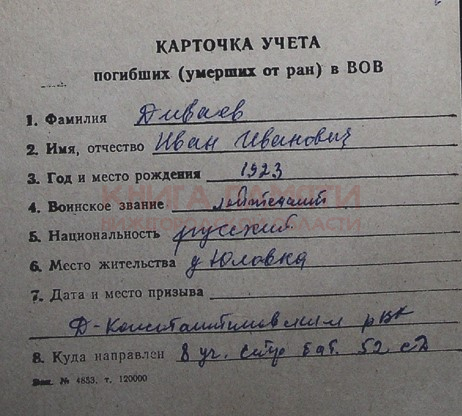 КАРТОЧКА УЧЕТА
погибших (умерших от ран) в ВОВ
1. Фамилия Диваев
2. Имя, отчество Иван Иванович
3. Год и место рождения 1923
4. Воинское звание лейтенант
5. Национальность русский
6. Место жительства д Юловка
7. Дата и место призыва
Д-Константиновским рВК
8. Куда направлен 8 уч. стр бат. 52 сд
Зак. № 4853, т. 120000
КНИГА ПАМЯТИ
НИЖЕГОРОДСКОЙ ОБЛАСТИ